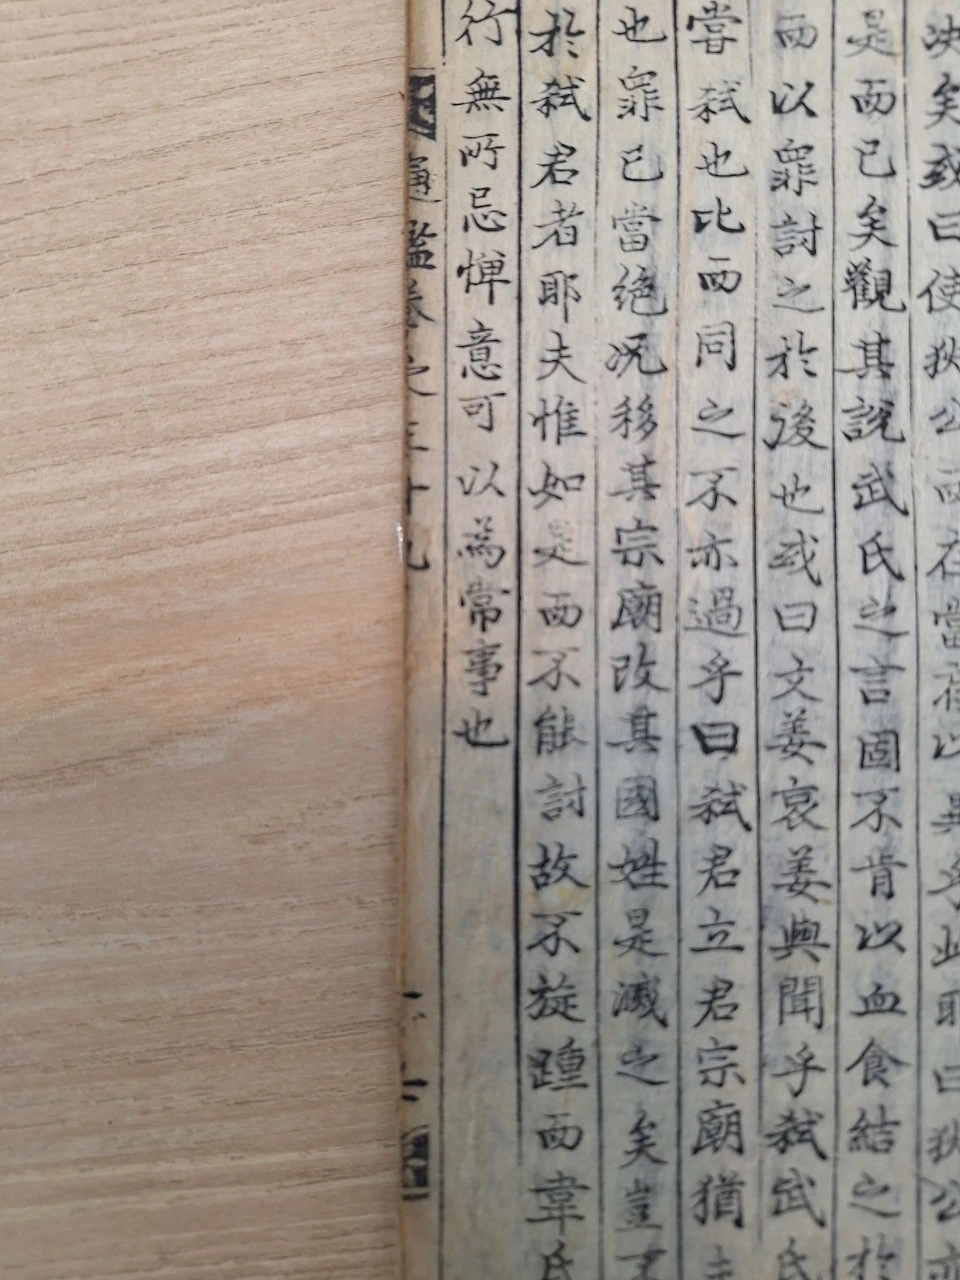 决矣或曰使狄公而在當存以異乎此耶曰狄公亦
是而已矣觀其說武氏之言固不肯以血食結之於
而以罪討之於後也或曰文姜哀姜與聞乎弑武氏
嘗弑也比而同之不亦過乎曰弑君立君宗廟猶
也罪已當絕况移其宗廟改其國姓是滅之矣豈不
於弑君者耶夫惟如是而不能討故不旋踵而韋氏
行無所忌憚意可以為常事也
通鑑卷之三十九